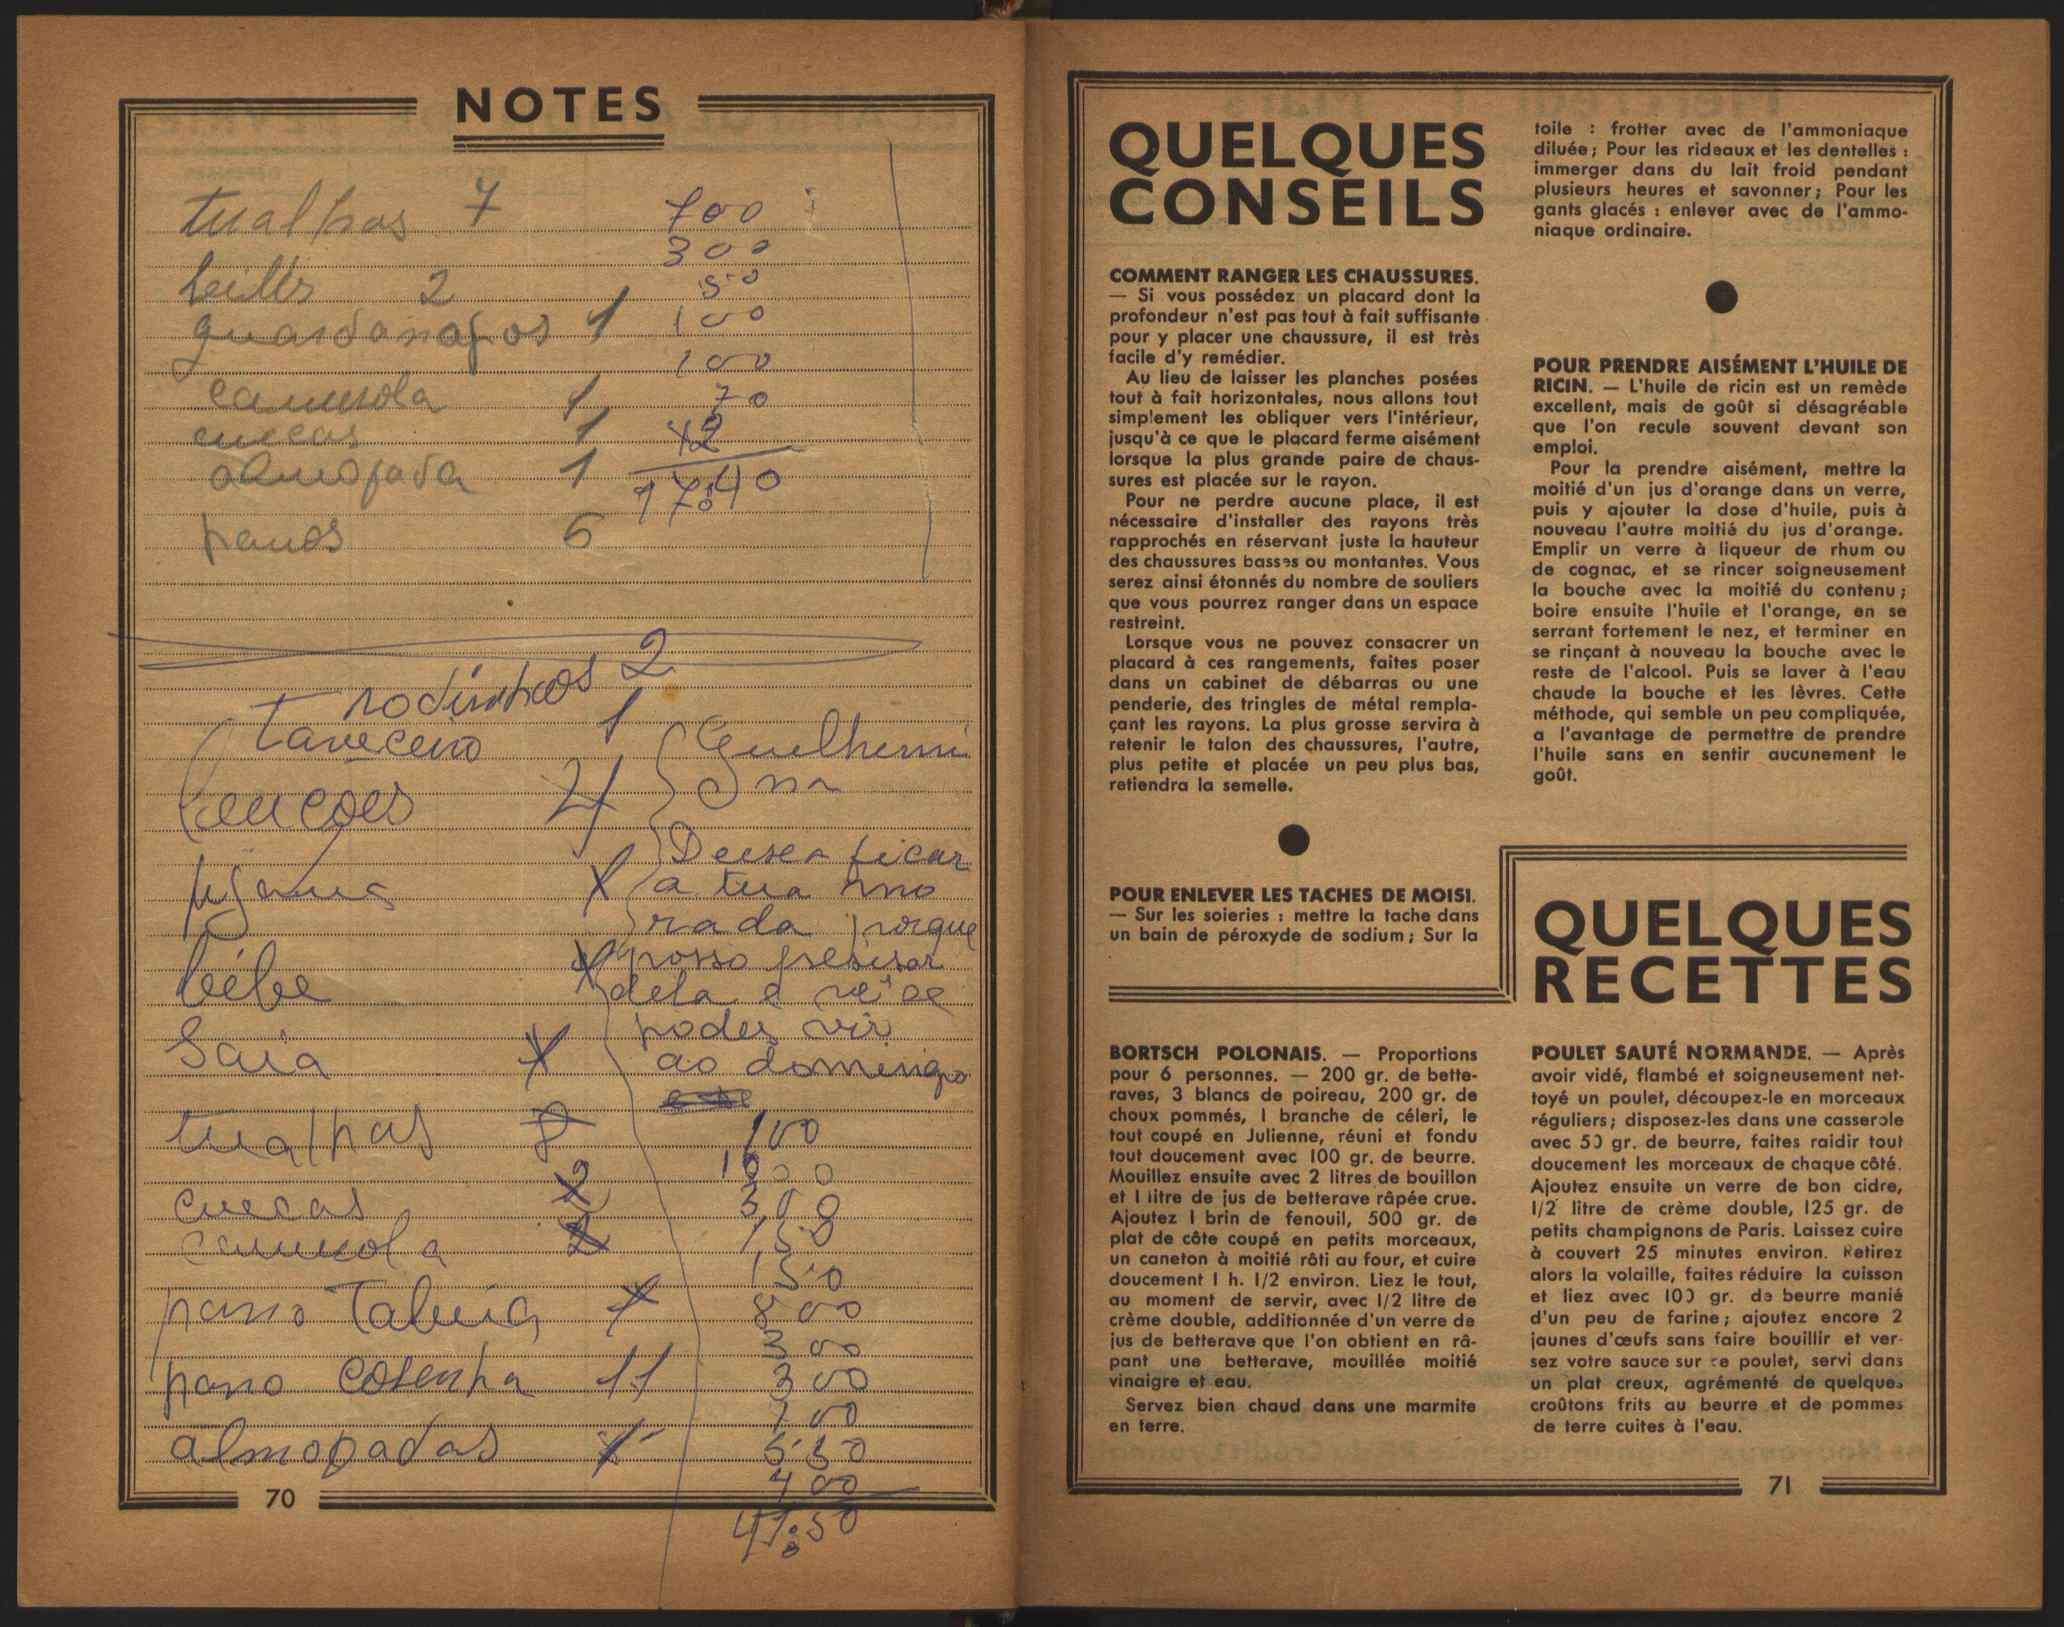 NOTES
tualhas 7
700
300
50
guardanapos 1
100
100
camusola 1
70
cuecas 1
almofada 1
17$40
panos 6
rodinhos 2
1
Guelhermi
na
lencoes 4
Deuse a ficar
pijama
a tua mo
rada porque
posso presisar
bébe
dela e se
podes vir
Saia
ao domingo
tualhas
100
cuecas 2
300
camusola 2
150
150
pano
800
300
pano cosenha 11
300
100
almofadas
400
70
QUELQUES
CONSEILS
COMMENT RANGER LES CHAUSSURES.
— Si vous possédez un placard dont la
profondeur n'est pas tout à fait suffisante
pour y placer une chaussure, il est très
facile d'y remédier.
Au lieu de laisser les planches posées
tout à fait horizontales, nous allons tout
simplement les obliquer vers l'intérieur,
jusqu'à ce que le placard ferme aisément
lorsque la plus grande paire de chaus-
sures est placée sur le rayon.
Pour ne perdre aucune place, il est
nécessaire d'installer des rayons très
rapprochés en réservant juste la hauteur
des chaussures basses ou montantes. Vous
serez ainsi étonnés du nombre de souliers
que vous pourrez ranger dans un espace
restreint.
Lorsque vous ne pouvez consacrer un
placard à ces rangements, faites poser
dans un cabinet de débarras ou une
penderie, des tringles de métal rempla-
çant les rayons. La plus grosse servira à
retenir le talon des chaussures, l'autre,
plus petite et placée un peu plus bas,
retiendra la semelle.
POUR ENLEVER LES TACHES DE MOISI.
— Sur les soieries : mettre la tache dans
un bain de péroxyde de sodium; Sur la
toile : frotter avec de l'ammoniaque
diluée; Pour les rideaux et les dentelles :
immerger dans du lait froid pendant
plusieurs heures et savonner; Pour les
gants glacés : enlever avec de l'ammo-
niaque ordinaire.
POUR PRENDRE AISÉMENT L'HUILE DE
RICIN. — L'huile de ricin est un remède
excellent, mais de goût si désagréable
que l'on recule souvent devant son
emploi.
Pour la prendre aisément, mettre la
moitié d'un jus d'orange dans un verre,
puis y ajouter la dose d'huile, puis à
nouveau l'autre moitié du jus d'orange.
Emplir un verre à liqueur de rhum ou
de cognac, et se rincer soigneusement
la bouche avec la moitié du contenu;
boire ensuite l'huile et l'orange, en se
serrant fortement le nez, et terminer en
se rinçant à nouveau la bouche avec le
reste de l'alcool. Puis se laver à l'eau
chaude la bouche et les lèvres. Cette
méthode, qui semble un peu compliquée,
a l'avantage de permettre de prendre
l'huile sans en sentir aucunement le
goût.
QUELQUES
RECETTES
BORTSCH POLONAIS. — Proportions
pour 6 personnes. — 200 gr. de bette-
raves, 3 blancs de poireau, 200 gr. de
choux pommés, 1 branche de céleri, le
tout coupé en Julienne, réuni et fondu
tout doucement avec 100 gr. de beurre.
Mouillez ensuite avec 2 litres de bouillon
et 1 litre de jus de betterave râpée crue.
Ajoutez 1 brin de fenouil, 500 gr. de
plat de côte coupé en petits morceaux,
un caneton à moitié rôti au four, et cuire
doucement 1 h. 1/2 environ. Liez le tout,
au moment de servir, avec 1/2 litre de
crème double, additionnée d'un verre de
jus de betterave que l'on obtient en râ-
pant une betterave, mouillée moitié
vinaigre et eau.
Servez bien chaud dans une marmite
en terre.
POULET SAUTÉ NORMANDE. — Après
avoir vidé, flambé et soigneusement net-
toyé un poulet, découpez-le en morceaux
réguliers; disposez-les dans une casserole
avec 50 gr. de beurre, faites raidir tout
doucement les morceaux de chaque côté.
Ajoutez ensuite un verre de bon cidre,
1/2 litre de crème double, 125 gr. de
petits champignons de Paris. Laissez cuire
à couvert 25 minutes environ. Retirez
alors la volaille, faites réduire la cuisson
et liez avec 100 gr. de beurre manié
d'un peu de farine; ajoutez encore 2
jaunes d'œufs sans faire bouillir et ver-
sez votre sauce sur ce poulet, servi dans
un plat creux, agrémenté de quelques
croûtons frits au beurre et de pommes
de terre cuites à l'eau.
71